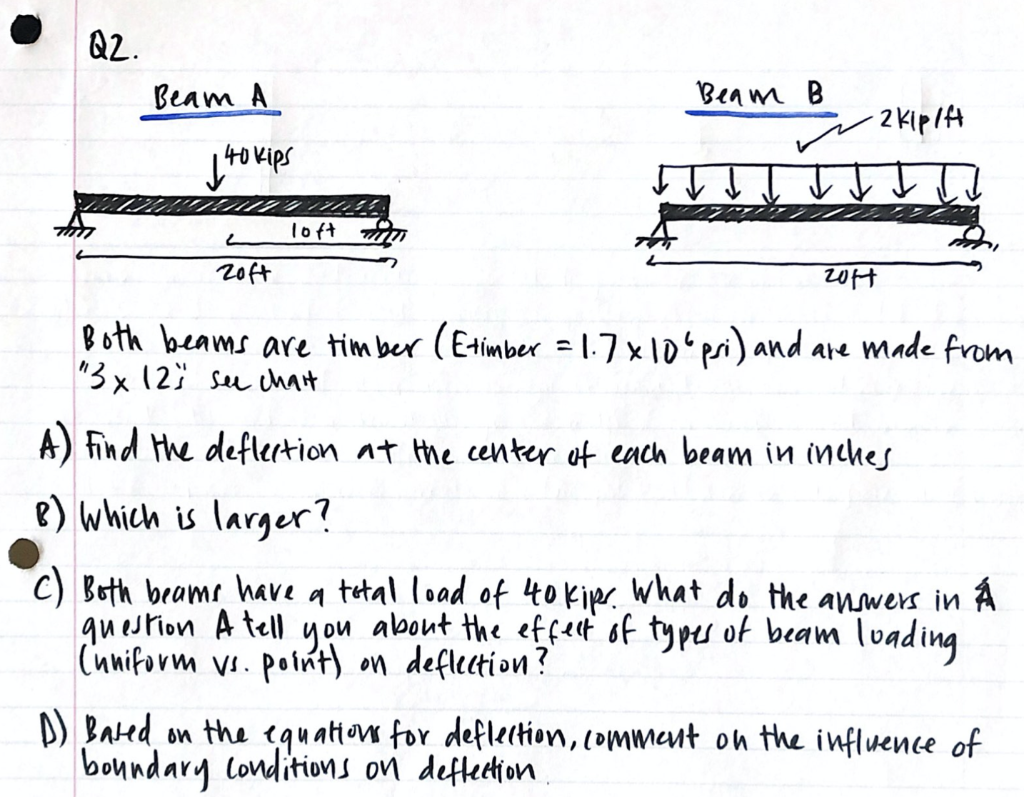 Q2.
Beam A
Beam B
2 kip/ft
40 kips
10 ft
20ft
20ft
Both beams are timber (Etimber = 1.7 x 10⁶ psi) and are made from
"3 x 12"; see chart
A) Find the deflection at the center of each beam in inches
B) Which is larger?
C) Both beams have a total load of 40 kips. What do the answers in A
question A tell you about the effect of types of beam loading
(uniform vs. point) on deflection?
D) Based on the equations for deflection, comment on the influence of
boundary conditions on deflection